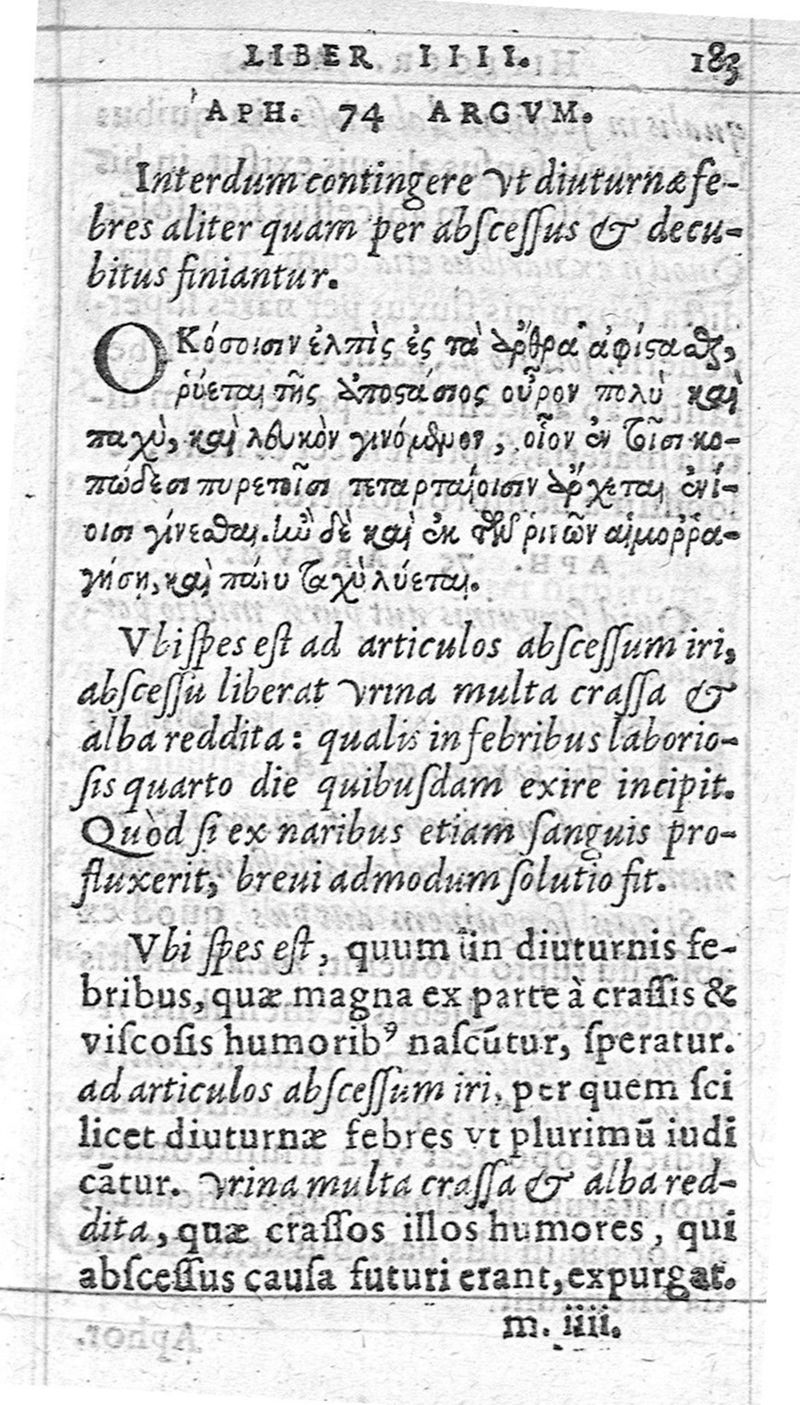 LIBER IIII. 183
APH. 74 ARGVM.
Interdum contingere vt diuturnæ fe-
bres aliter quam per abſceſſus & decu-
bitus finiantur.
ΟΚόσοισιν ἐλπὶς ἐς τὰ ἄρθρα ἀφίστασθαι,
ῥύεται τῆς ἀποστάσιος οὖρον πολὺ καὶ
παχὺ, καὶ λευκὸν γινόμενον, οἷον ἐν τοῖσι κο-
πώδεσι πυρετοῖσι τεταρταίοισιν ἄρχεται ἐνί-
οισι γίνεσθαι. ἢν δὲ καὶ ἐκ τῶν ῥινῶν αἱμορρα-
γήσῃ, καὶ πάνυ ταχὺ λύεται.
Vbi ſpes eſt ad articulos abſceſſum iri,
abſceſſu liberat vrina multa craſſa &
alba reddita: qualis in febribus laborio-
ſis quarto die quibuſdam exire incipit.
Quòd ſi ex naribus etiam ſanguis pro-
fluxerit, breui admodum ſolutio fit.
Vbi ſpes eſt, quum in diuturnis fe-
bribus, quæ magna ex parte à craſſis &
viſcoſis humorib⁹ naſcūtur, ſperatur.
ad articulos abſceſſum iri, per quem ſci
licet diuturnæ febres vt plurimū iudi
cātur. vrina multa craſſa & alba red-
dita, quæ craſſos illos humores, qui
abſceſſus cauſa futuri erant, expurgat.
m. iiii.